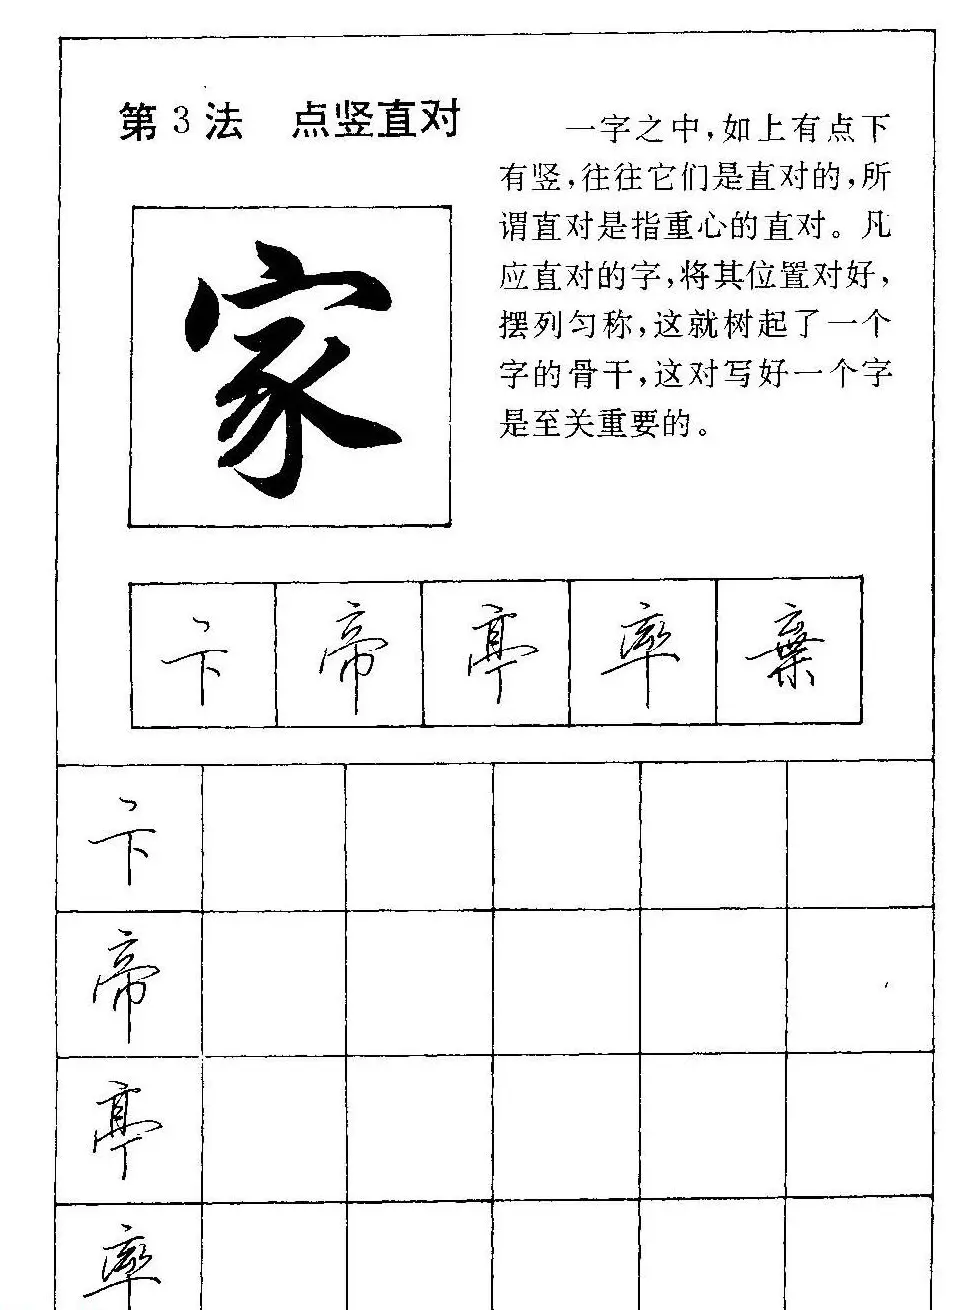 第3法 点竖直对
一字之中，如上有点下
有竖，往往它们是直对的，所
谓直对是指重心的直对。凡
应直对的字，将其位置对好，
摆列匀称，这就树起了一个
字的骨干，这对写好一个字
是至关重要的。
家
卞 帝 亭 率 棄
卞
帝
亭
率